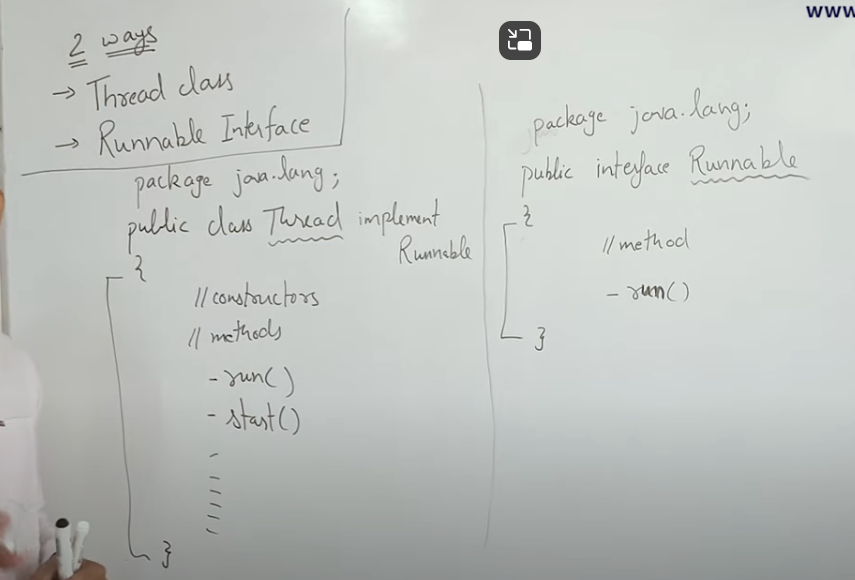 2 ways
→ Thread class
→ Runnable Interface
package java.lang;
public class Thread implement
Runnable
{
//constructors
// methods
- run()
- start()
-
-
-
-
-
}
www
package java.lang;
public interface Runnable
{
//method
- run()
}